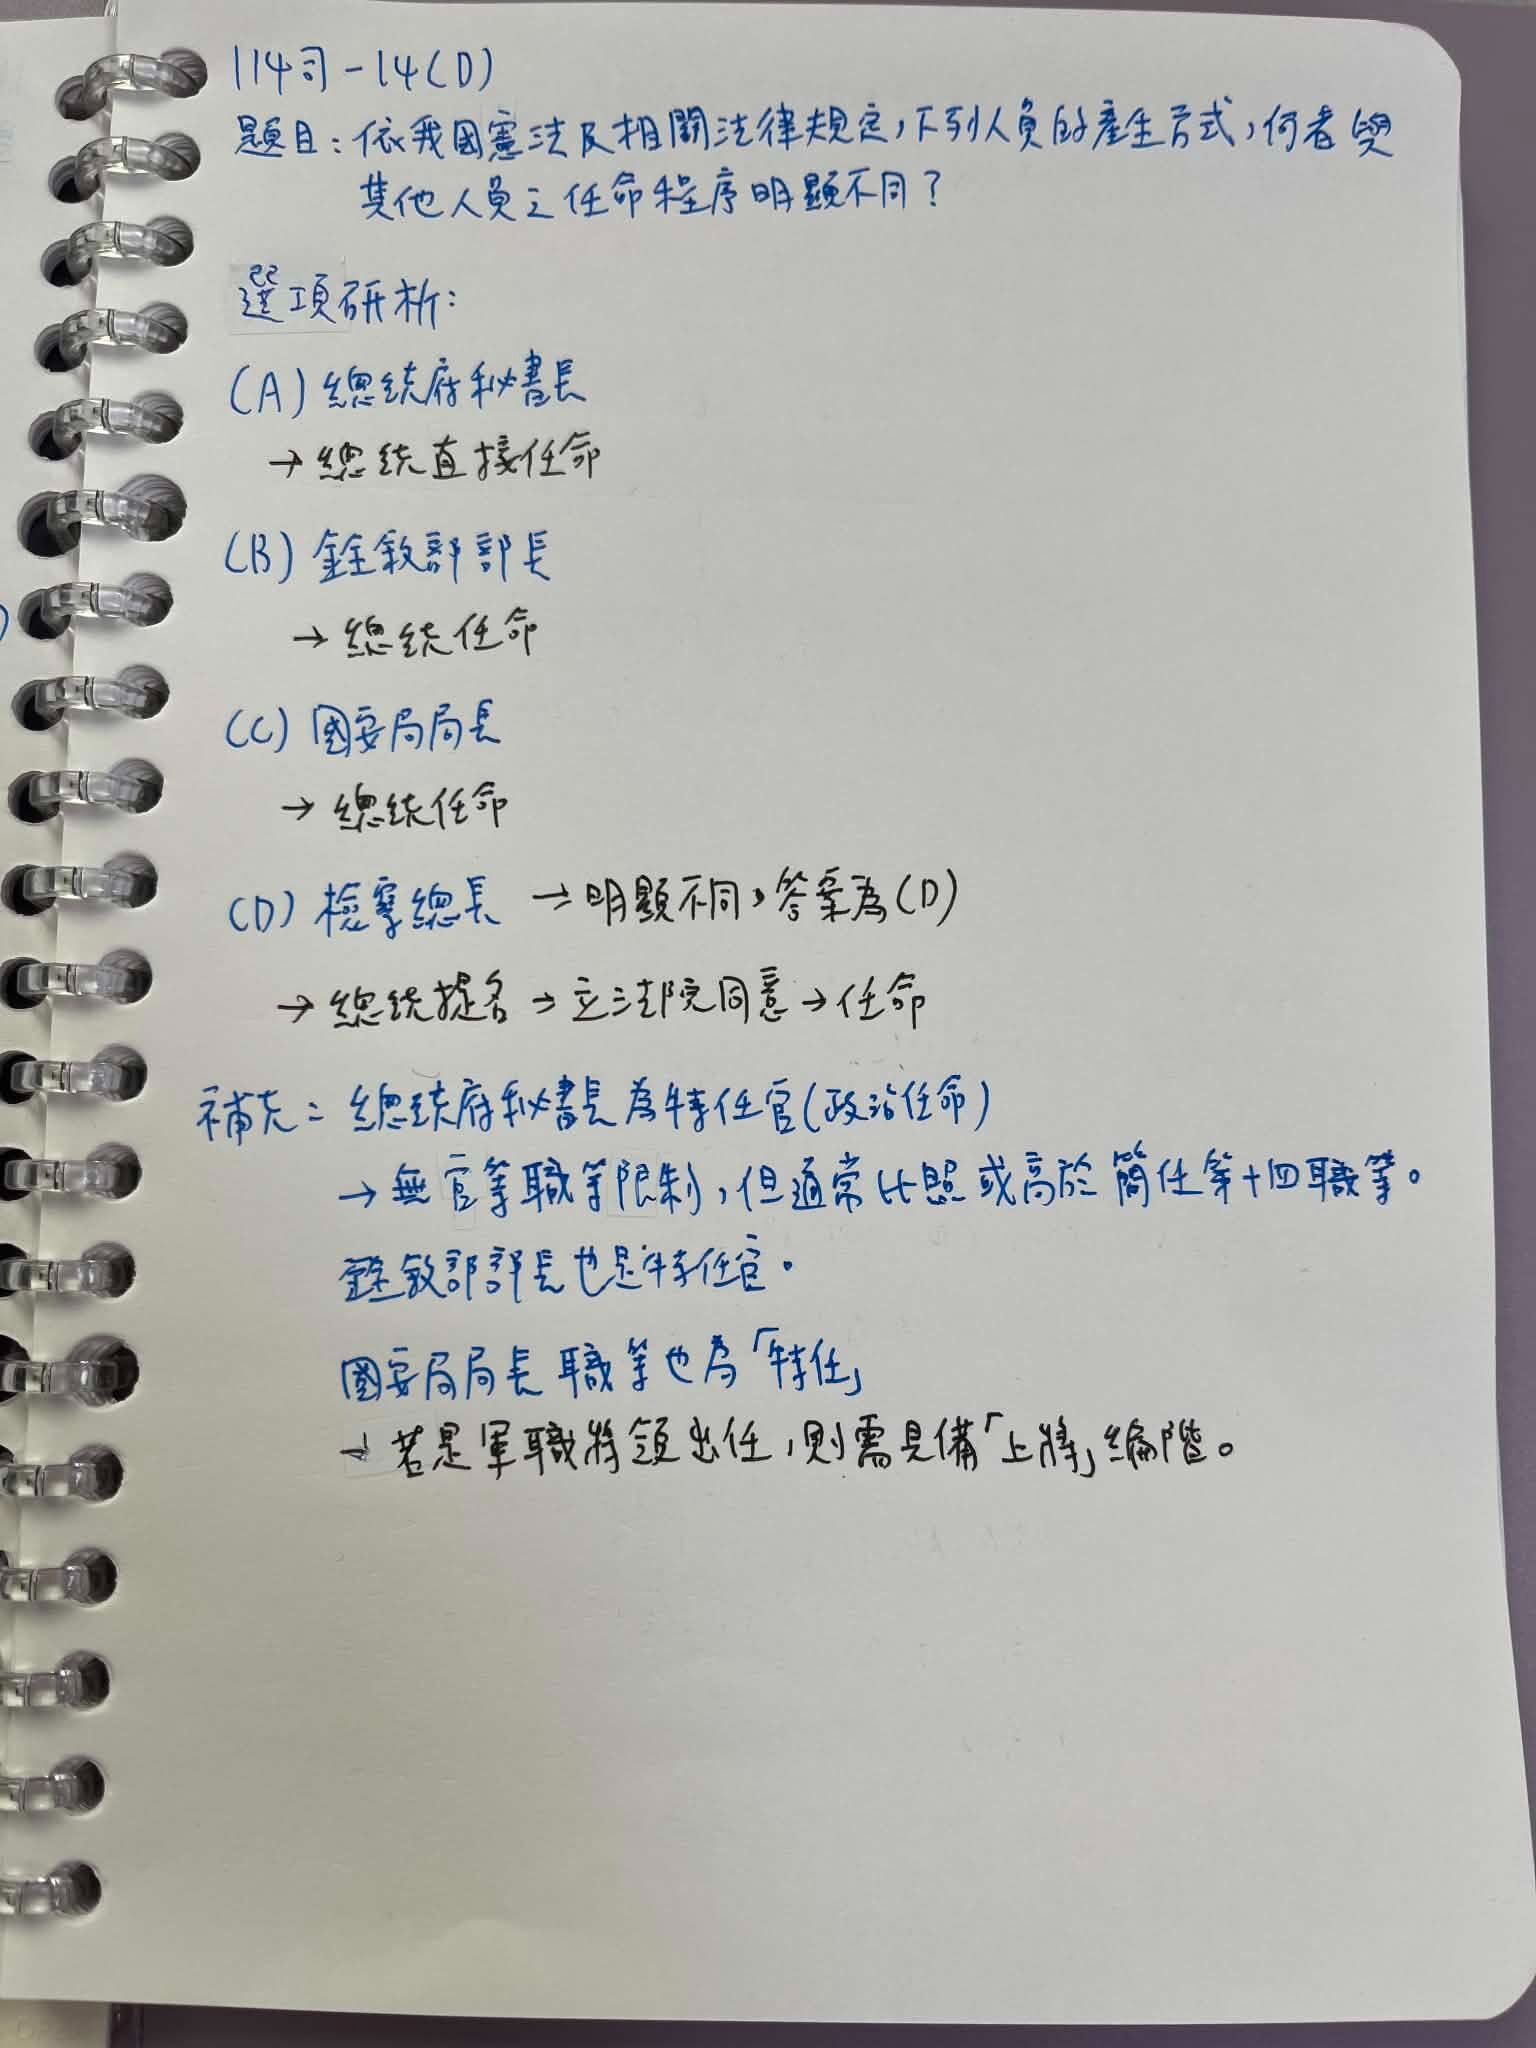 114司-14(D)
題目：依我國憲法及相關法律規定，下列人員的產生方式，何者與
其他人員之任命程序明顯不同？
選項研析：
(A) 總統府秘書長
→ 總統直接任命
(B) 銓敘部部長
→ 總統任命
(C) 國安局局長
→ 總統任命
(D) 檢察總長 → 明顯不同，答案為(D)
→ 總統提名 → 立法院同意 → 任命
補充：總統府秘書長為特任官(政治任命)
→ 無官等職等限制，但通常比照或高於簡任第十四職等。
銓敘部部長也是特任官。
國安局局長職等也為「特任」
→ 若是軍職將領出任，則需具備「上將」編階。